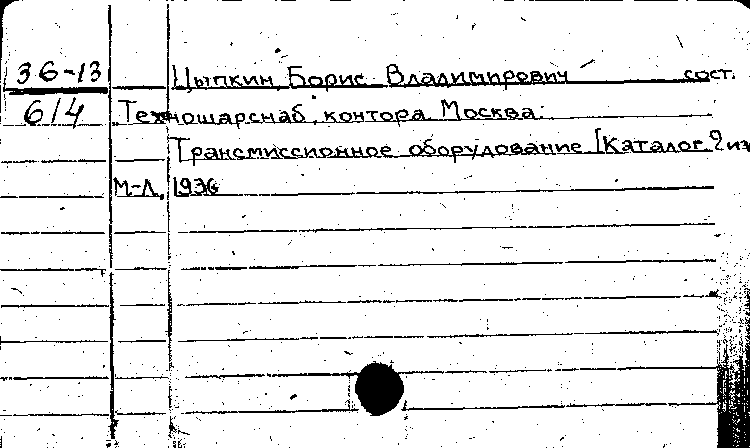 36-13 Цыпкин, Борис Владимирович сост.
6/4 Техношарснаб, контора. Москва.
Трансмиссионное оборудование [Каталог. 2 из
М-Л, 1936